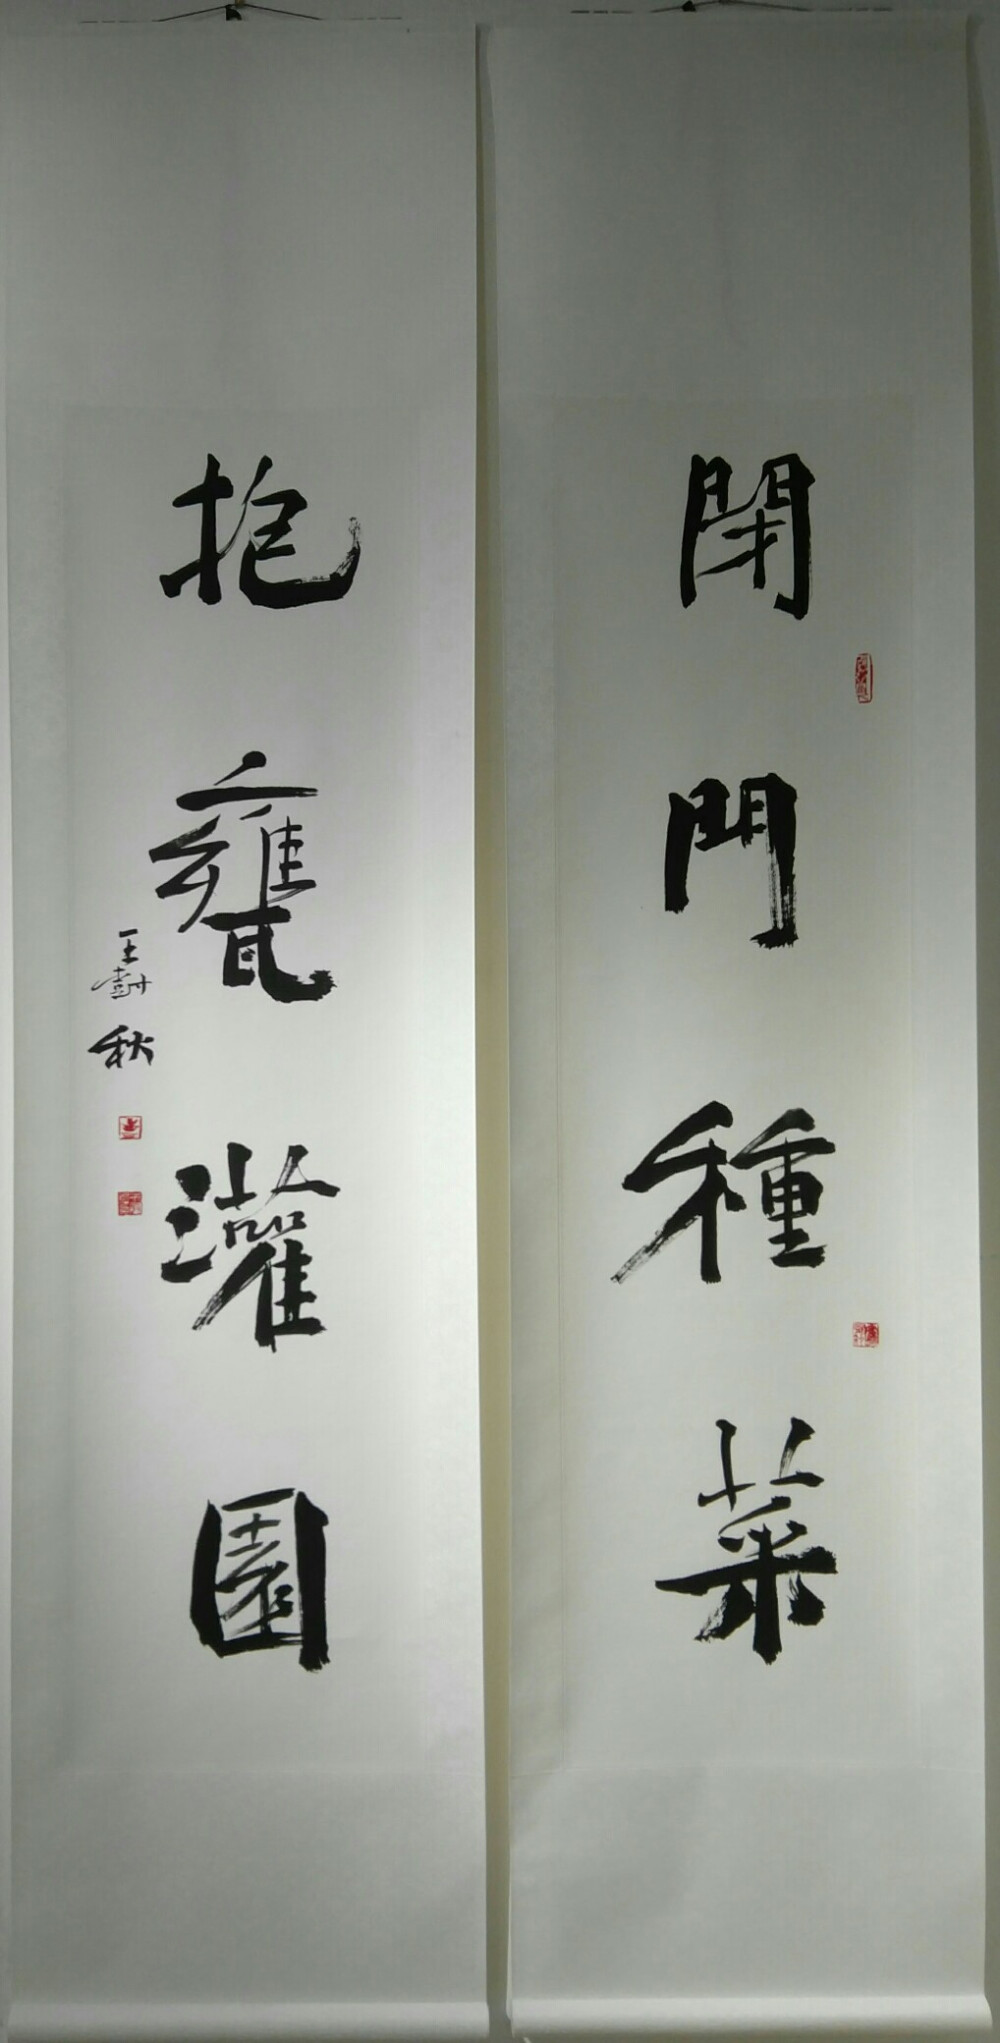 閉門種菜
抱甕灌園
王樹秋